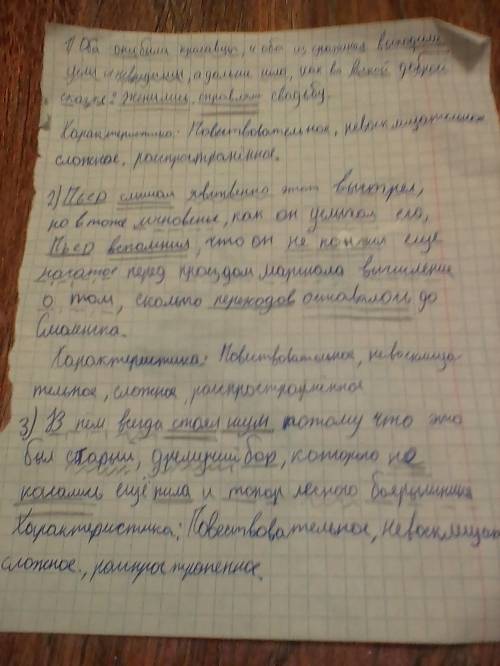 1) Оба любили красавицу, и оба из сражения выходили
целы и невредимы, а дальше шло, как во всякой доброй
сказке: женились, справляли свадьбу.
Характеристика: Повествовательное, невосклицательное
сложное, распространённое.
2) Пьер слышал явственно этот выстрел,
но в тоже мгновенье, как он услыхал его,
Пьер вспомнил, что он не кончил ещё
начатое перед проездом маршала вычисление
о том, сколько переходов оставалось до
Смоленска.
Характеристика: Повествовательное, невосклица-
тельное, сложное, распространённое
3) В нем всегда стоял шум потому что это
был старый, дремучий бор, которого не
касались ещё пила и топор лесного барышника
Характеристика: Повествовательное, невосклицат
сложное., распространенное.